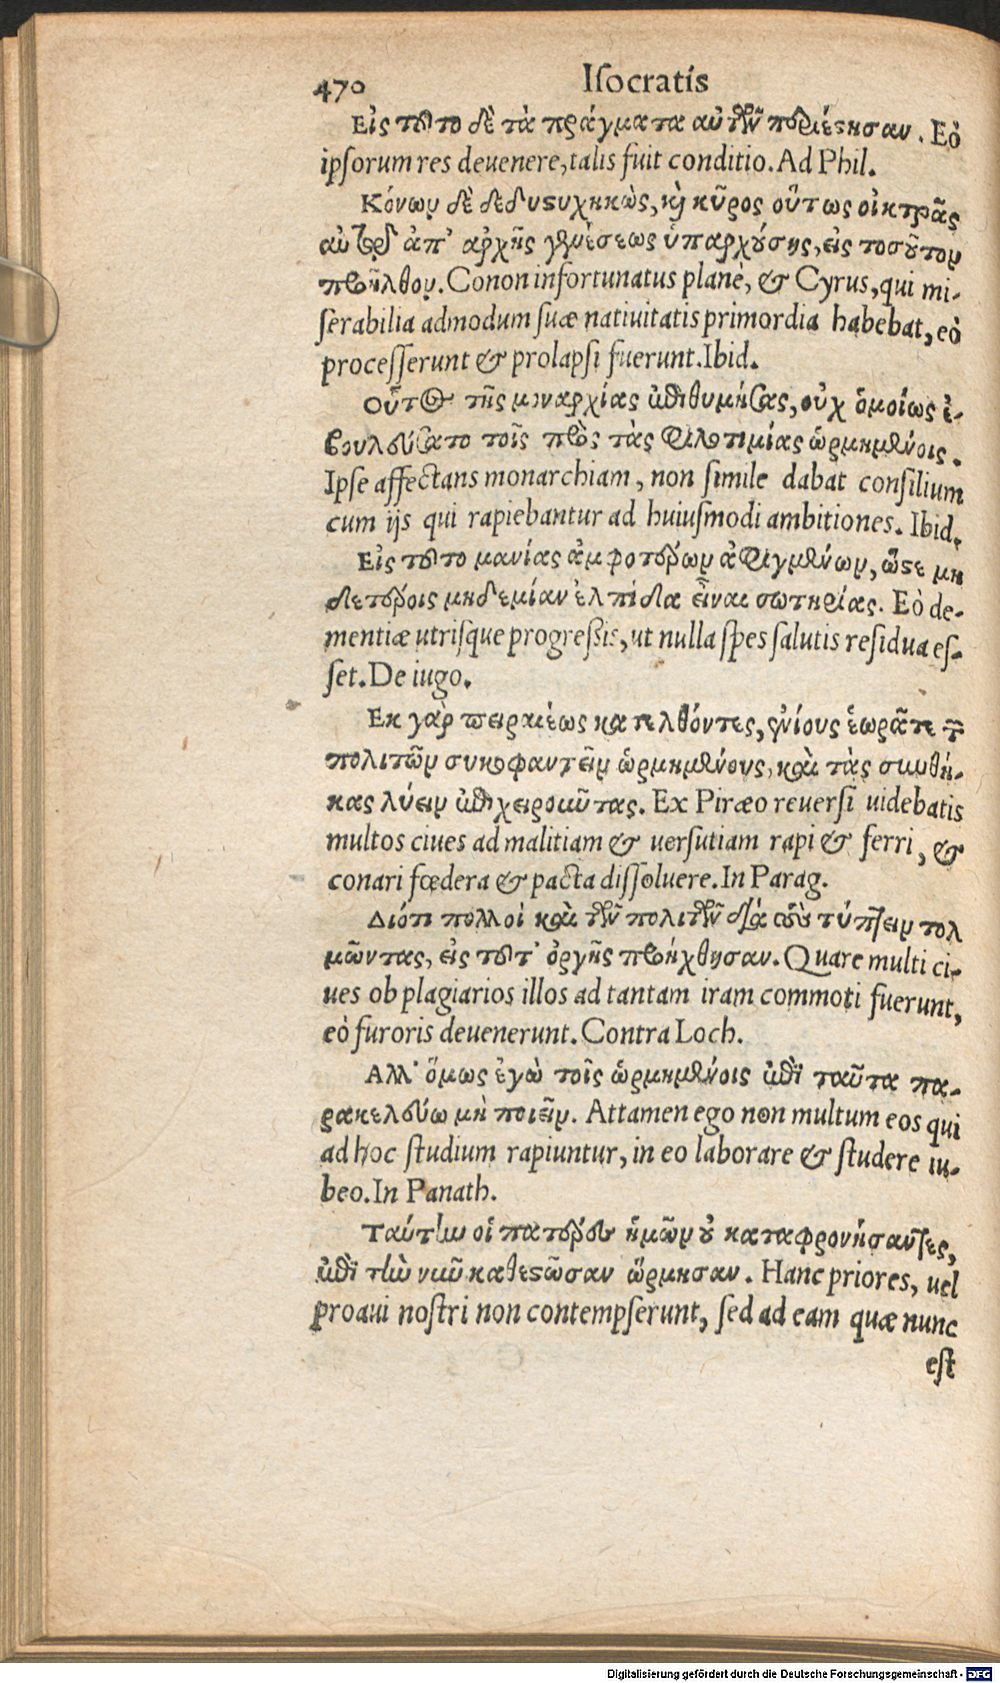 470 Iſocratis
Εἰς τοῦτο δὲ τὰ πράγματα αὐτῶν περιέστησαν. Eò
ipſorum res deuenere, talis fuit conditio. Ad Phil.
Κόνων δὲ δεδυςυχηκὼς, καὶ κῦρος οὕτως οἰκτρᾶς
αὐτῷ ἀπ' ἀρχῆς γενέσεως ὑπαρχούσης, εἰς τοσοῦτον
προῆλθον. Conon infortunatus plane, & Cyrus, qui mi-
ſerabilia admodum ſuæ natiuitatis primordia habebat, eò
proceſſerunt & prolapſi fuerunt. Ibid.
Οὗτος τῆς μοναρχίας ἐπιθυμήσας, οὐχ ὁμοίως ἐ-
βουλεύσατο τοῖς πρὸς τὰς φιλοτιμίας ὡρμημένοις.
Ipſe affectans monarchiam, non ſimile dabat conſilium
cum ijs qui rapiebantur ad huiuſmodi ambitiones. Ibid.
Εἰς τοῦτο μανίας ἀμφοτέρων ἀφιγμένων, ὥςε μη
δετέροις μηδεμίαν ἐλπίδα εἶναι σωτηρίας. Eò de-
mentiæ utriſque progreſsis, ut nulla ſpes ſalutis reſidua eſ-
ſet. De iugo.
Εκ γὰρ πειραιέως κατελθόντες, ἐνίους ἑωρᾶτε τῶν
πολιτῶν συκοφαντεῖν ὡρμημένους, καὶ τὰς συνθή-
κας λύειν ἐπιχειροῦντας. Ex Piræo reuerſi uidebatis
multos ciues ad malitiam & uerſutiam rapi & ferri, &
conari fœdera & pacta diſſoluere. In Parag.
Διότι πολλοὶ καὶ τῶν πολιτῶν διὰ τοὺς τύπτειν τολ
μῶντας, εἰς τοῦτ' ὀργῆς προήχθησαν. Quare multi ci-
ues ob plagiarios illos ad tantam iram commoti fuerunt,
eò furoris deuenerunt. Contra Loch.
Αλλ' ὅμως ἐγὼ τοῖς ὡρμημένοις ἐπὶ ταῦτα πα-
ρακελεύω μὴ ποιεῖν. Attamen ego non multum eos qui
ad hoc ſtudium rapiuntur, in eo laborare & ſtudere iu-
beo. In Panath.
Ταύτην οἱ πατέρες ἡμῶν οὐ καταφρονήσαντες,
ἐπὶ τὴν νῦν καθεςῶσαν ὥρμησαν. Hanc priores, uel
proaui noſtri non contempſerunt, ſed ad eam quæ nunc
eſt
Digitalisierung gefördert durch die Deutsche Forschungsgemeinschaft - DFG